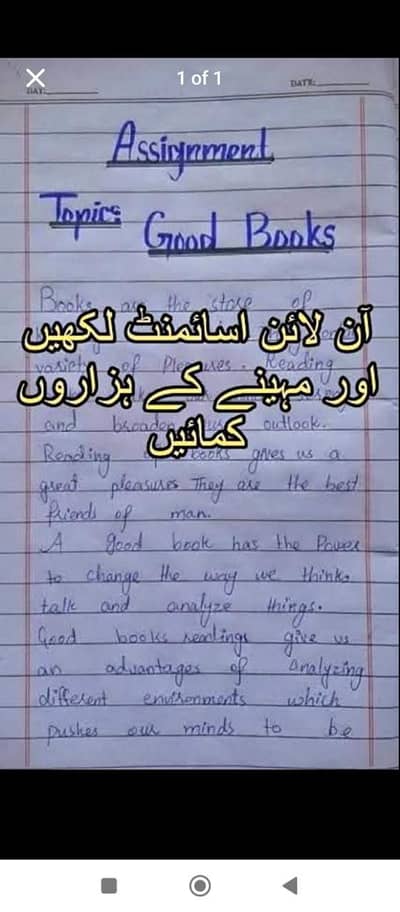 1 of 1
DAY:
DATE:
Assignment
Topic: Good Books
Books are the store of
آن لائن اسائمنٹ لکھیں
variety of Pleasures. Reading
اور مہینے کے ہزاروں
کمائیں
and broaden outlook.
Reading books gives us a
great pleasures They are the best
friends of man.
A good book has the Power
to change the way we think,
talk and analyze things.
Good books readings give us
an advantages of analyzing
different environments which
pushes our minds to be